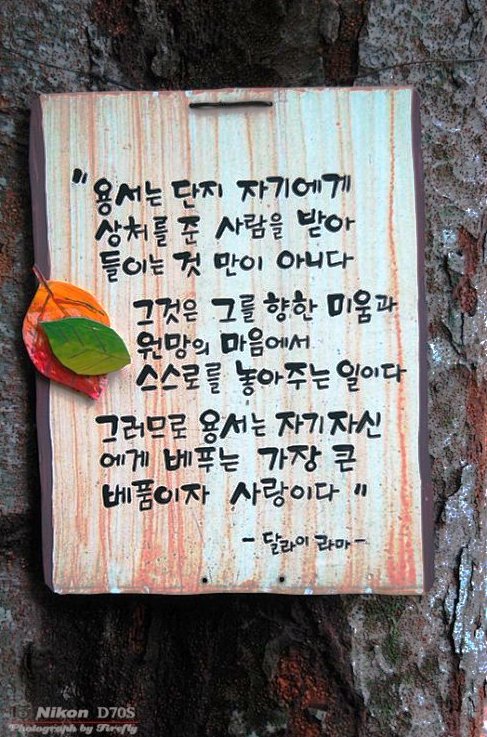 "용서는 단지 자기에게
상처를 준 사람을 받아
들이는 것 만이 아니다
그것은 그를 향한 미움과
원망의 마음에서
스스로를 놓아주는 일이다
그러므로 용서는 자기자신
에게 베푸는 가장 큰
베품이자 사랑이다"
- 달라이 라마 -
15 Nikon D70S
Photograph by Firefly